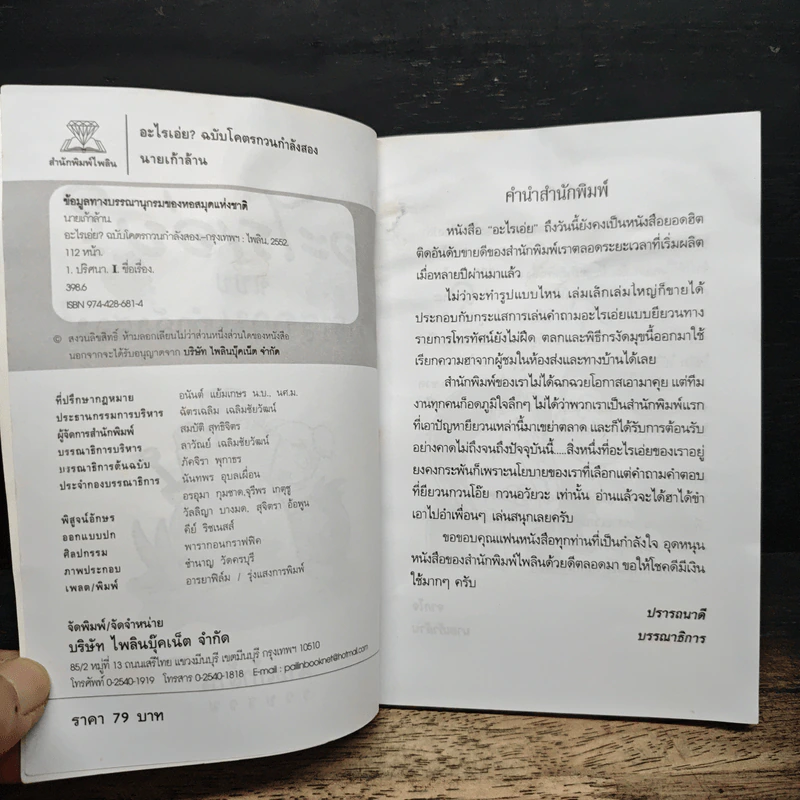 สำนักพิมพ์ไพลิน
อะไรเอ่ย? ฉบับโคตรกวนกำลังสอง
นายเก้าล้าน
ข้อมูลทางบรรณานุกรมของหอสมุดแห่งชาติ
นายเก้าล้าน.
อะไรเอ่ย? ฉบับโคตรกวนกำลังสอง.-กรุงเทพฯ : ไพลิน, 2552.
112 หน้า.
1. ปริศนา. I. ชื่อเรื่อง.
398.6
ISBN 974-428-681-4
© สงวนลิขสิทธิ์ ห้ามลอกเลียนไม่ว่าส่วนหนึ่งส่วนใดของหนังสือ
นอกจากจะได้รับอนุญาตจาก บริษัท ไพลินบุ๊คเน็ต จำกัด
ที่ปรึกษากฎหมาย อนันต์ แย้มเกษร น.บ., นศ.ม.
ประธานกรรมการบริหาร ฉัตรเฉลิม เฉลิมชัยวัฒน์
ผู้จัดการสำนักพิมพ์ สมบัติ สุทธิจิตร
บรรณาธิการบริหาร ลาวัณย์ เฉลิมชัยวัฒน์
บรรณาธิการต้นฉบับ ภัคจิรา พุกาธร
ประจำกองบรรณาธิการ นันทพร อุบลเผื่อน
อรอุมา กุมชาด,จุรีพร เกตุชู
พิสูจน์อักษร วัลลิญา บางมด, สุจิตรา อ้อพูน
ออกแบบปก คีย์ ริชเนสส์
ศิลปกรรม พารากอนกราฟฟิค
ภาพประกอบ ชำนาญ วัดครบุรี
เพลต/พิมพ์ อารยาฟิล์ม / รุ่งแสงการพิมพ์
จัดพิมพ์/จัดจำหน่าย
บริษัท ไพลินบุ๊คเน็ต จำกัด
85/2 หมู่ที่ 13 ถนนเสรีไทย แขวงมีนบุรี เขตมีนบุรี กรุงเทพฯ 10510
โทรศัพท์ 0-2540-1919 โทรสาร 0-2540-1818 E-mail : pailinbooknet@hotmail.com
ราคา 79 บาท
คำนำสำนักพิมพ์
หนังสือ "อะไรเอ่ย" ถึงวันนี้ยังคงเป็นหนังสือยอดฮิต
ติดอันดับขายดีของสำนักพิมพ์เราตลอดระยะเวลาที่เริ่มผลิต
เมื่อหลายปีผ่านมาแล้ว
ไม่ว่าจะทำรูปแบบไหน เล่มเล็กเล่มใหญ่ก็ขายได้
ประกอบกับกระแสการเล่นคำถามอะไรเอ่ยแบบยียวนทาง
รายการโทรทัศน์ยังไม่ฝืด ตลกและพิธีกรงัดมุขนี้ออกมาใช้
เรียกความฮาจากผู้ชมในห้องส่งและทางบ้านได้เลย
สำนักพิมพ์ของเราไม่ได้ฉกฉวยโอกาสเอามาคุย แต่ทีม
งานทุกคนก็อดภูมิใจลึกๆ ไม่ได้ว่าพวกเราเป็นสำนักพิมพ์แรก
ที่เอาปัญหายียวนเหล่านี้มาเขย่าตลาด และก็ได้รับการต้อนรับ
อย่างคาดไม่ถึงจนถึงปัจจุบันนี้.....สิ่งหนึ่งที่อะไรเอ่ยของเราอยู่
ยงคงกระพันก็เพราะนโยบายของเราที่เลือกแต่คำถามคำตอบ
ที่ยียวนกวนโอ๊ย กวนอวัยวะ เท่านั้น อ่านแล้วจะได้ฮาได้ขำ
เอาไปอำเพื่อนๆ เล่นสนุกเลยครับ
ขอขอบคุณแฟนหนังสือทุกท่านที่เป็นกำลังใจ อุดหนุน
หนังสือของสำนักพิมพ์ไพลินด้วยดีตลอดมา ขอให้โชคดีมีเงิน
ใช้มากๆ ครับ
ปรารถนาดี
บรรณาธิการ